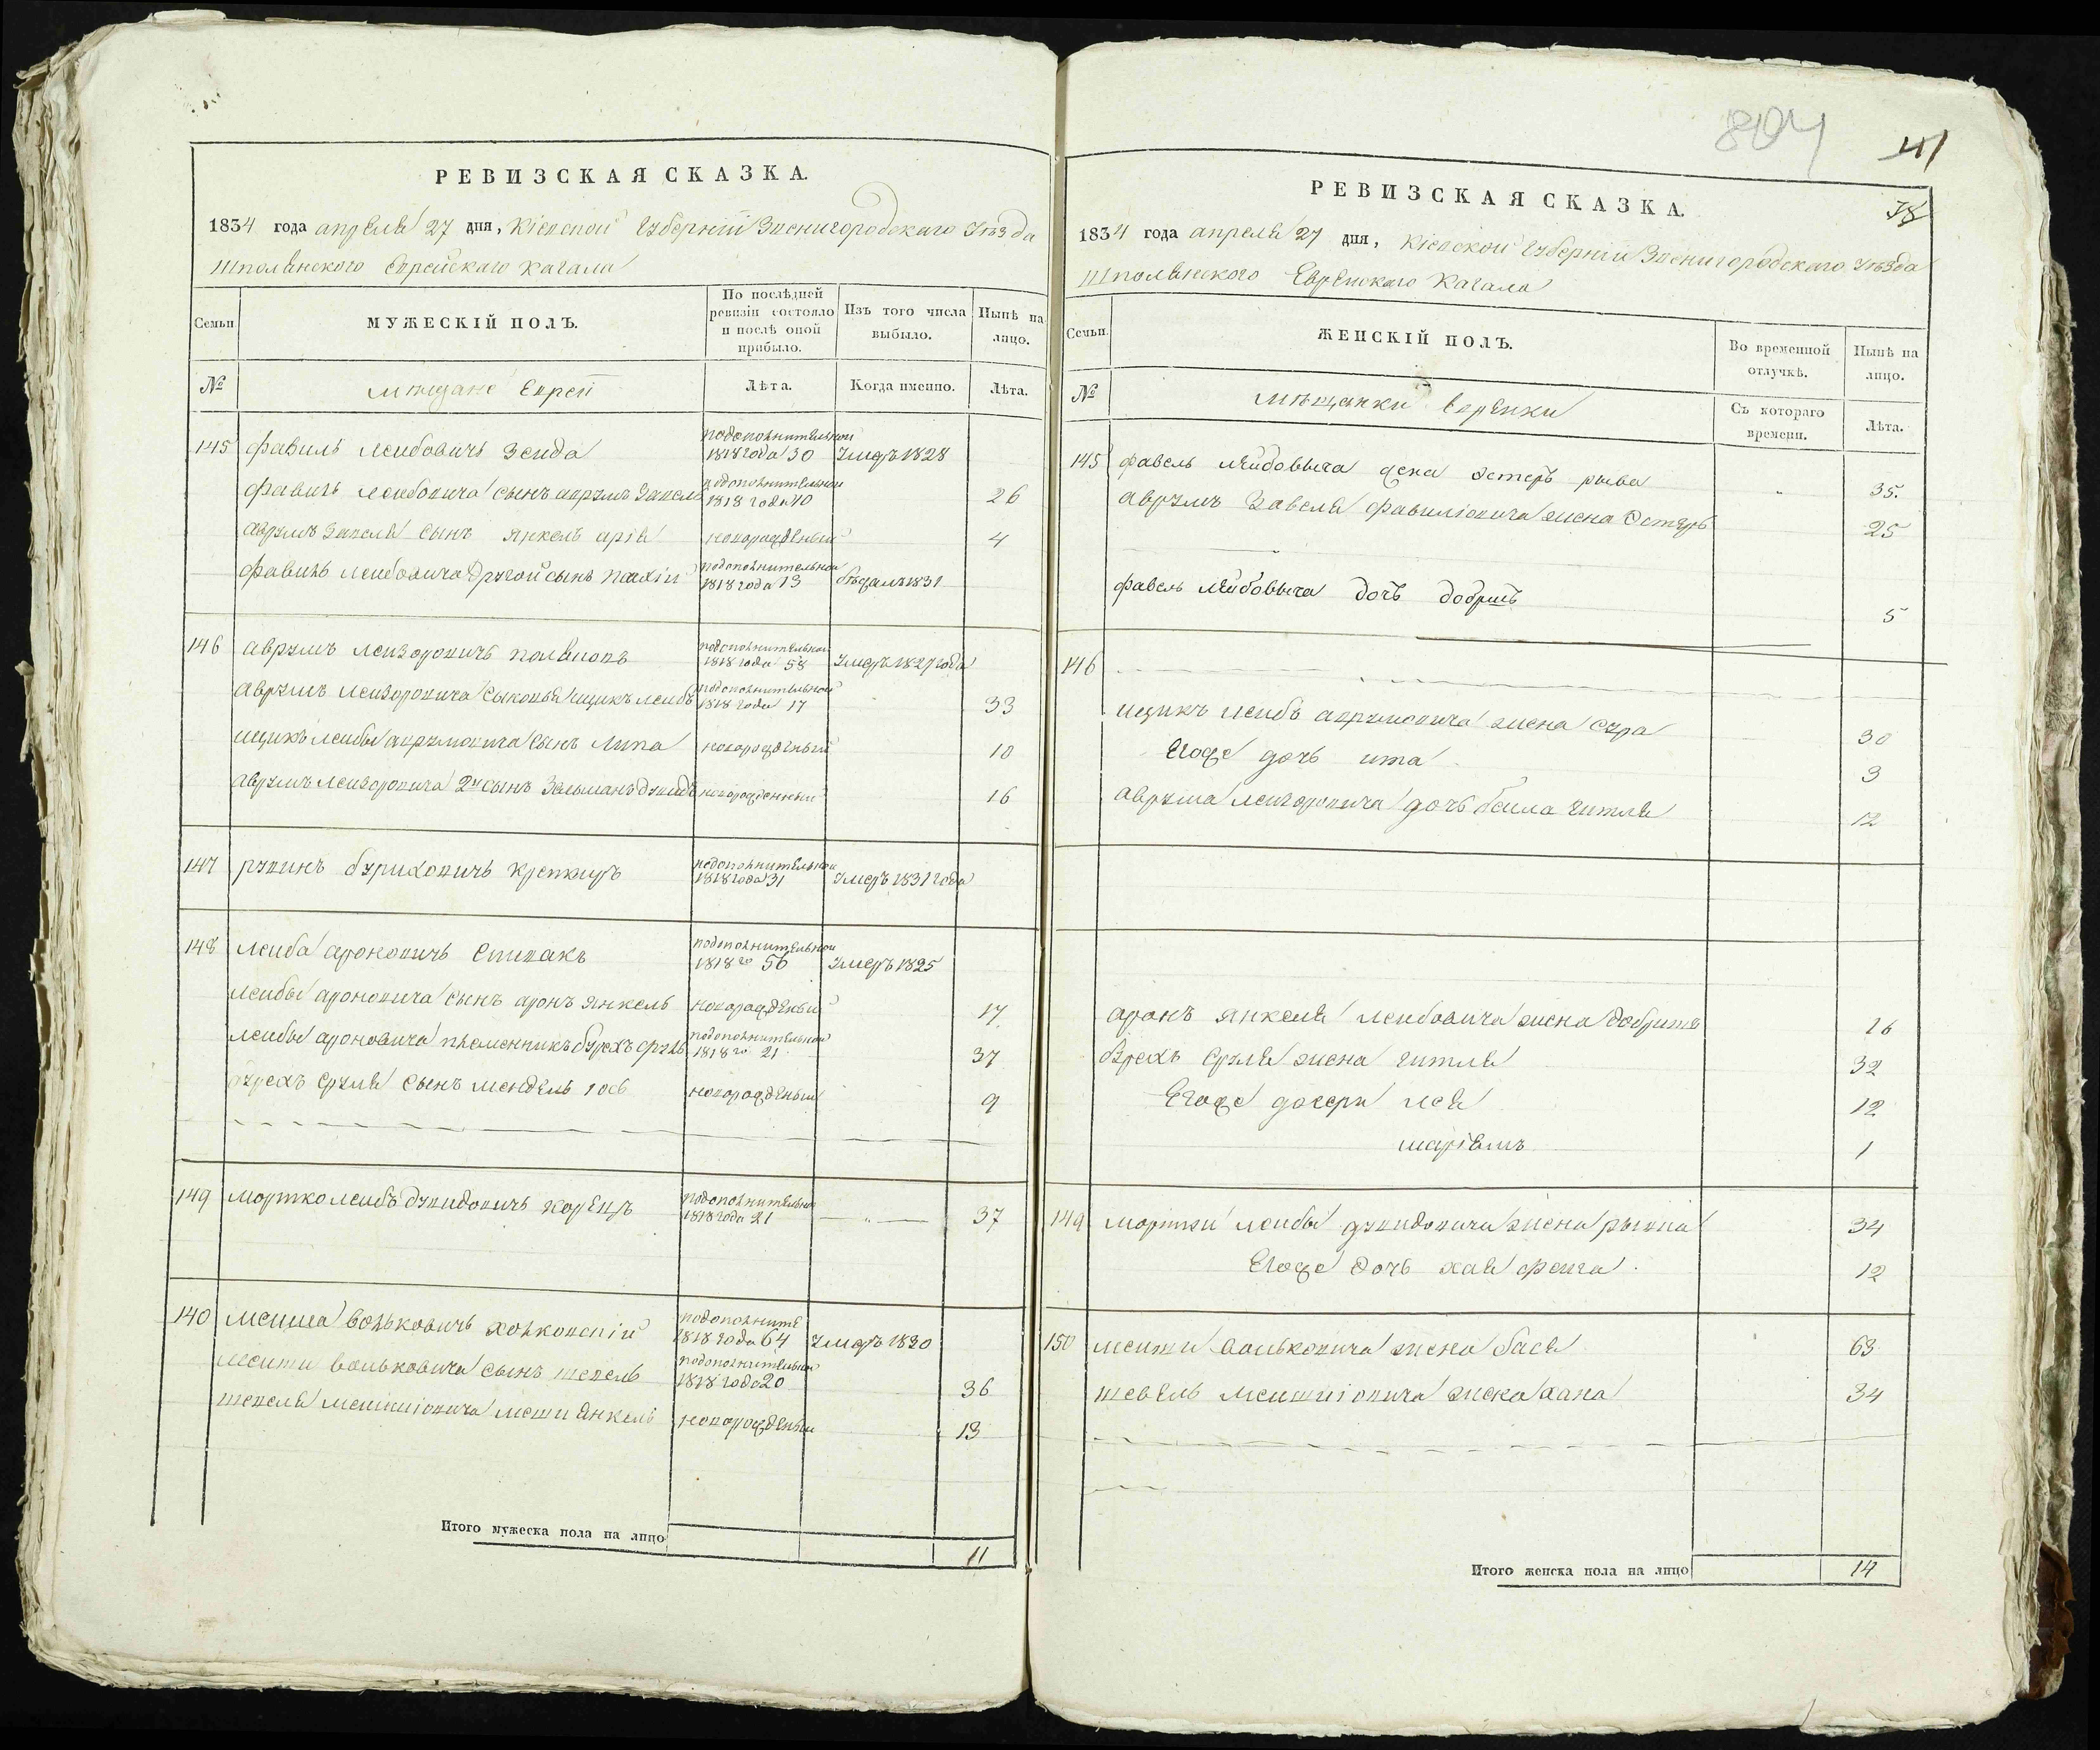 РЕВИЗСКАЯ СКАЗКА.
1834 года апреля 27 дня, Кіевской губерніи Звенигородскаго уѣзда
Шполянского Еврейскаго кагала
Семьи
МУЖЕСКІЙ ПОЛЪ.
По послѣдней ревизіи состояло и послѣ оной прибыло.
Изъ того числа выбыло.
Нынѣ на лицо.
№
мещане Евреи
Лѣта.
Когда именно.
Лѣта.
145 фавиль Леибовичъ Зеида подополнительной 1818 года 30 умеръ 1828
фавиль Леибовича сынъ аврумъ Завель подополнительной 1818 года 10 26
аврумъ Завеля сынъ янкель арія новорожденый 4
фавиль Леибовича другой сынъ подополнительной 1818 года 13 бежалъ 1831
146 аврумъ Леизоровичъ полвиовъ подополнительной 1818 года 58 умеръ 1827 года
аврумъ Леизоровича сыновья ицикъ леибъ подополнительной 1818 года 17 33
ицикъ леибы аврумовича сынъ липа новорожденый 10
аврумъ Леизоровича 2й сынъ Зельманъ дувидъ новорожденный 16
147 рувинъ буриховичъ подополнительной 1818 года 31 умеръ 1831 года
148 леиба ароновичъ Спивакъ подополнительной 1818 го 56 умеръ 1825
леибы ароновича сынъ аронъ янкель новорожденый 17
леибы ароновича племенникъ бурехъ сруль подополнительной 1818 го 21 37
бурехъ Сруля сынъ мендель іось новорожденый 9
149 мортко леибъ дувидовичъ корецъ подополнительной 1818 года 21 — „ — 37
140 меиша вольковичъ холковскій подополните 1818 года 64 умеръ 1830
меиши вольковича сынъ шевель подополнительной 1818 года 20 36
шевеля меишиовича янкель новорожденый 13
Итого мужеска пола на лицо 11
804
41
38
РЕВИЗСКАЯ СКАЗКА.
1834 года апреля 27 дня, Кіевской губерніи Звенигородскаго уѣзда
Шполянского Евреискаго Кагала
Семьи.
ЖЕНСКІЙ ПОЛЪ.
Во временной отлучкѣ.
Нынѣ на лицо.
№
мѣщанки Евреики
Съ котораго времени.
Лѣта.
145 фавель лейбовыча жена эстеръ рыва „ 35.
аврумъ Завеля фавиліовича жена Эстеръ 25
фавель лейбовыча дочь добришъ 5
146
ицикъ леибъ аврумовича жена сура 30
Егоже дочь ита 3
аврума леизоровича дочь беила гитля 12
аронъ янкеля леибовича жена добришъ 16
бурехъ Сруля жена гитля 32
Егоже дочери лея 12
маріямъ 1
149 мортки леибы дувидовича жена рывка 34
Егоже дочь хая феига 12
150 меиши вольковича жена бася 63
шевель меишиіовича жена хана 34
Итого женска пола на лицо 14